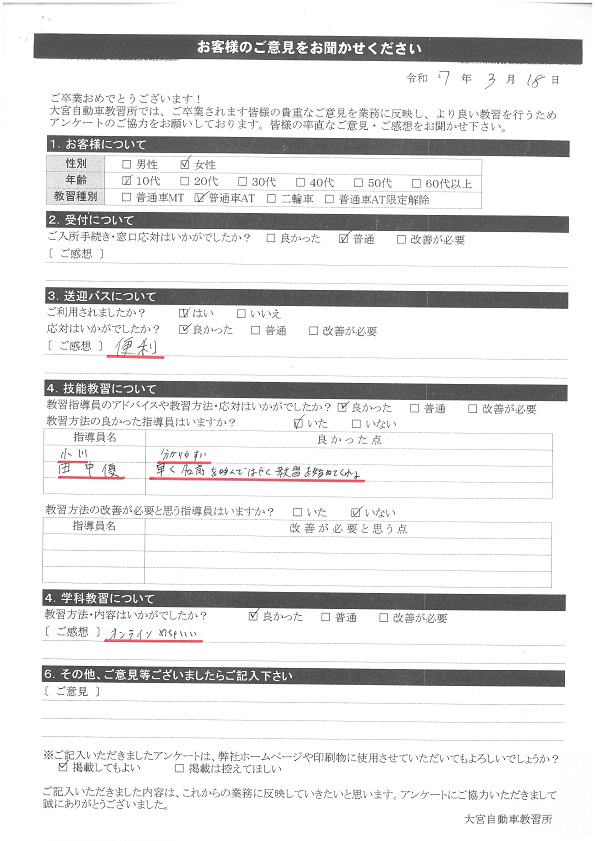 お客様のご意見をお聞かせください
令和 7 年 3 月 18 日
ご卒業おめでとうございます！
大宮自動車教習所では、ご卒業されます皆様の貴重なご意見を業務に反映し、より良い教習を行うため
アンケートのご協力をお願いしております。皆様の率直なご意見・ご感想をお聞かせ下さい。
1. お客様について
性別 □ 男性 ☑ 女性
年齢 ☑ 10代 □ 20代 □ 30代 □ 40代 □ 50代 □ 60代以上
教習種別 □ 普通車MT ☑ 普通車AT □ 二輪車 □ 普通車AT限定解除
2. 受付について
ご入所手続き・窓口応対はいかがでしたか？ □ 良かった ☑ 普通 □ 改善が必要
〔 ご感想 〕
3. 送迎バスについて
ご利用されましたか？ ☑ はい □ いいえ
応対はいかがでしたか？ ☑ 良かった □ 普通 □ 改善が必要
〔 ご感想 〕 便利
4. 技能教習について
教習指導員のアドバイスや教習方法・応対はいかがでしたか？ ☑ 良かった □ 普通 □ 改善が必要
教習方法の良かった指導員はいますか？ ☑ いた □ いない
指導員名 良かった点
小川 分かりやすい
田中優 早く名前を呼んではやく教習を始めてくれる
教習方法の改善が必要と思う指導員はいますか？ □ いた ☑ いない
指導員名 改善が必要と思う点
4. 学科教習について
教習方法・内容はいかがでしたか？ ☑ 良かった □ 普通 □ 改善が必要
〔 ご感想 〕 オンライン めちゃいい
6. その他、ご意見等ございましたらご記入下さい
〔 ご意見 〕
※ご記入いただきましたアンケートは、弊社ホームページや印刷物に使用させていただいてもよろしいでしょうか？
☑ 掲載してもよい □ 掲載は控えてほしい
ご記入いただきました内容は、これからの業務に反映していきたいと思います。アンケートにご協力いただきまして
誠にありがとうございました。
大宮自動車教習所